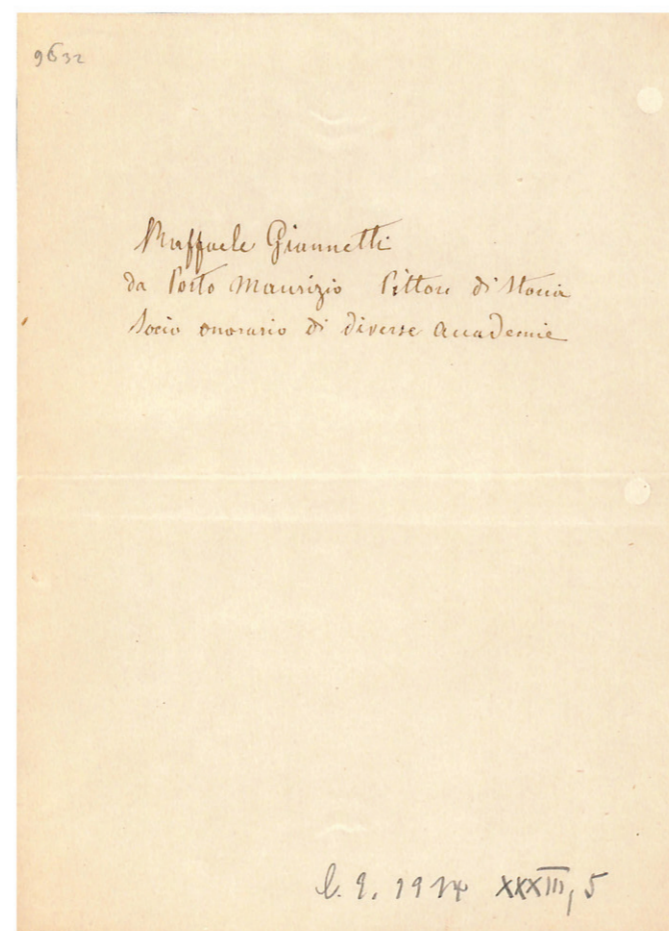 9632
Raffaele Giannetti
da Porto Maurizio Pittore di Storia
Socio onorario di diverse Accademie
XXXIII, 5